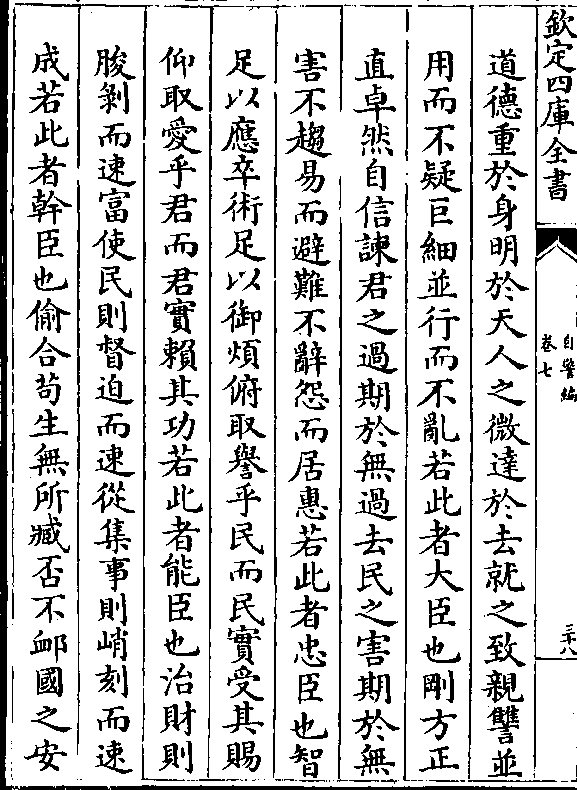 欽定四庫全書
自警編
卷七
三十八
道德重於身明於天人之微達於去就之致親讐並
用而不疑巨細並行而不亂若此者大臣也剛方正
直卓然自信諫君之過期於無過去民之害期於無
害不趨易而避難不辭怨而居惠若此者忠臣也智
足以應卒術足以御煩俯取譽乎民而民實受其賜
仰取愛乎君而君實賴其功若此者能臣也治財則
朘剝而速富使民則督迫而速從集事則峭刻而速
成若此者幹臣也偷合苟生無所臧否不䘏國之安